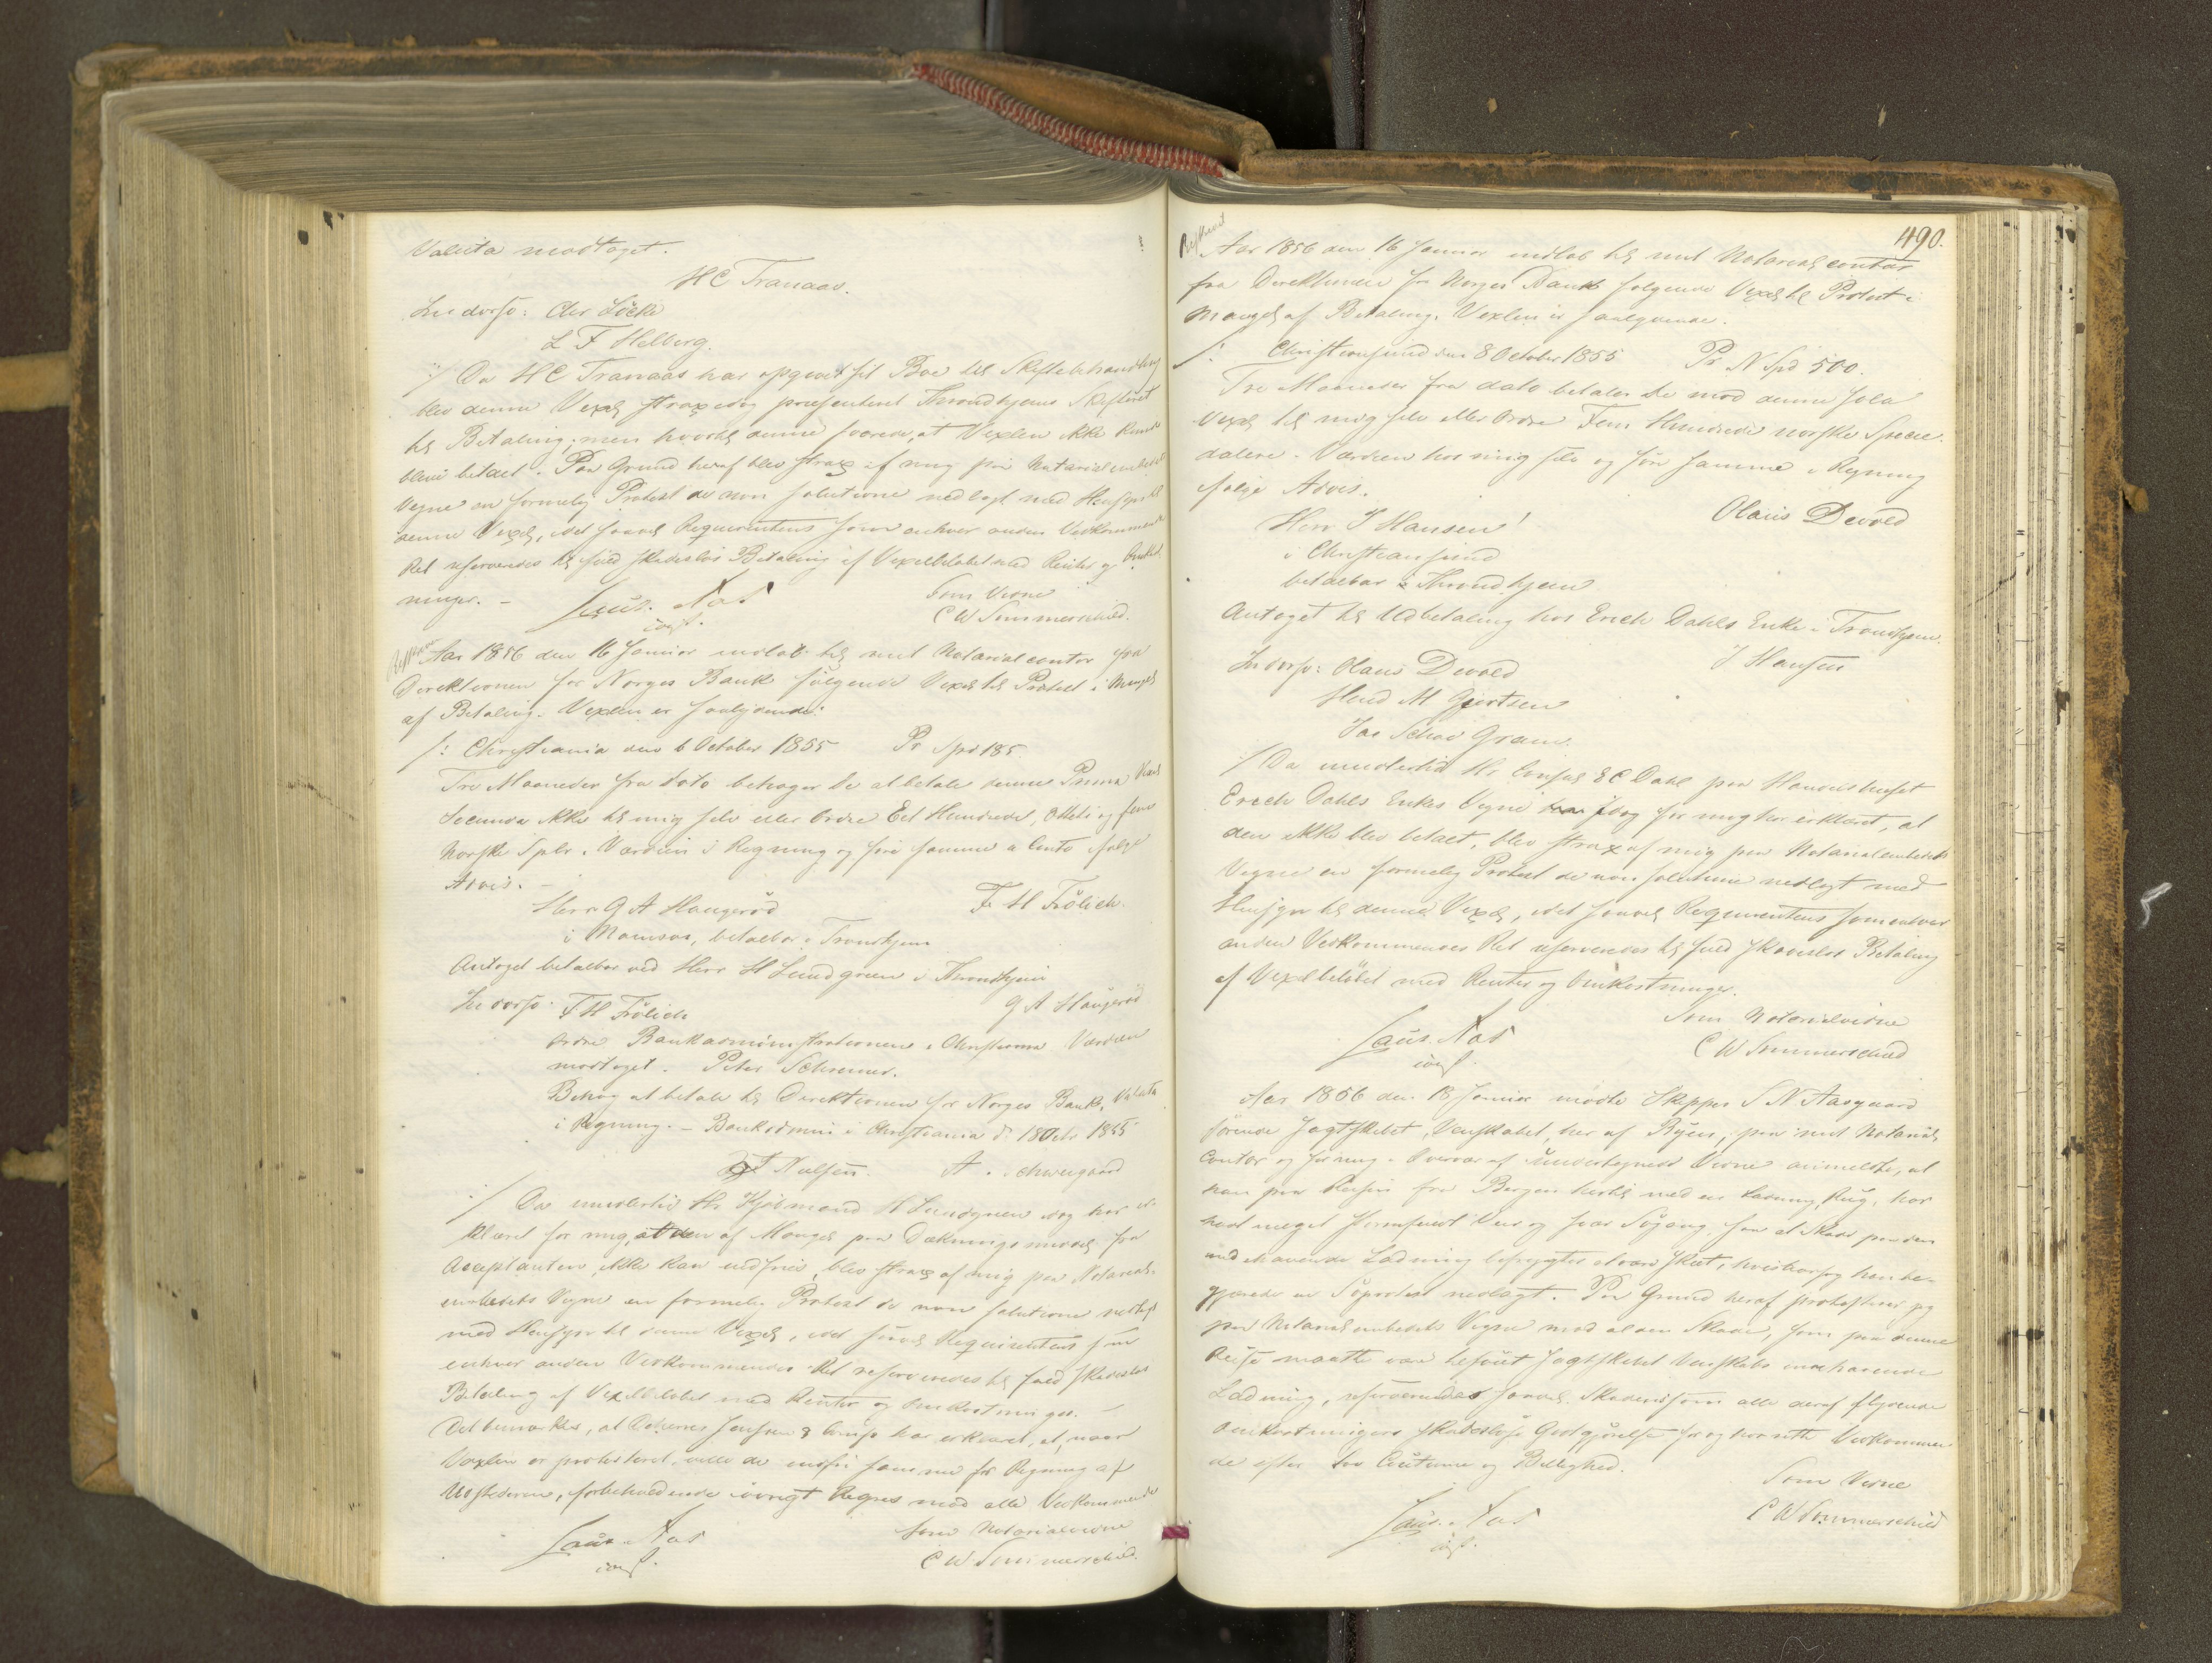 Valuta modtaget.
HC Tranaas.
Indorso: Chr Löcke
L F Helberg.
/ Da HC Tranaas har opgivet sit Boe til Skiftebehandling
blev denne Vexel strax idag præsenteret Throndhjems Skifteret
til Betaling, men hvortil denne svarede, at Vexlen ikke kunde
blive betalt. Paa Grund heraf blev strax af mig paa Notarialembedets
Vegne en formelig Protest de non solutione nedlagt med Hensyn til
denne Vexel, idet saavel Reqvirentens som enhver anden Vedkommendes
Ret reserveredes til fuld skadeslös Betaling af Vexelbelöbet med Renter og Omkost
ninger. –
Laus. Aas
const.
Som Vidne
C W Sommerschild.
Beskrevet
Aar 1856 den 16 Januar indlöb til mit Notarialcontor fra
Direktionen for Norges Bank fölgende Vexel til Protest i Mangel
af Betaling. Vexlen er saalydende:
/: Christiania den 6 October 1855 Pr Spd 185
Tre Maaneder fra dato behager De at betale denne Prima Vexel
Secunda ikke til mig selv eller Ordre Eet Hundrede, Otteti og fem
Norske Spdlr. Værdien i Regning og före samme a Conto ifölge
Advis. –
F. H Frölich.
Herr G A Haugeröd
i Namsos, betalbar i Trondhjem
Antaget betalbar ved Herr H Lundgreen i Throndhjem
G A Haugeröd
Indorso: F H Frölich
Ordre Bankadministrationen i Christiania Værdien
modtaget. Peter Schreiner.
Behag at betale til Direktionen for Norges Bank, Valuta
i Regning. – Bankadmin i Christiania d. 18 Octr 1855
Nielsen. A. Schweigaard
/ Da imidlertid Hr Kjöbmand H Lundgreen idag har er-
klæret for mig, at den af Mangel paa Dækningsmiddel fra
Acceptanten ikke kan indfries, blev strax af mig paa Notarial-
embedets Vegne en formelig Protest de non solutione nedlagt
med Hensyn til denne Vexel, idet saavel Reqvirentens som
enhver anden Vedkommendes Ret reserveredes til fuld skadeslös
Betaling af Vexelbelöbet med Renter og Omkostninger. –
Det bemærkes, at Dhrr Jenssen & Comp har erklæret, at, naar
Vexlen er protesteret, ville de indfri samme for Regning af
Udstederen, forbeholdende iövrigt Regres mod alle Vedkommende
Laus. Aas
const.
Som Notarialvidne
C W Sommerschild.
490.
Beskrevet
Aar 1856 den 16 Januar indlöb til mit Notarialcontor
fra Direktionen for Norges Bank fölgende Vexel til Protest i
Mangel af Betaling. Vexlen er saalydende.
/: Christiansund den 8 October 1855 Pr N Spd 500.
Tre Maaneder fra dato betaler De mod denne Sola
Vexel til mig selv eller Ordre Fem Hundrede norske Specie-
dalere. Værdien hos mig selv og för samme i Regning
ifölge Advis.
Olaus Devold
Herr J Hansen!
i Christiansund
betalbar i Throndhjem
Antaget til Udbetaling hos Erich Dahls Enke i Trondhjem.
J Hansen
Indorso: Olaus Devold
Hend M Gjertsen
Jac Schow Gram.
/ Da imidlertid Hr Consul E C Dahl paa Handelshuset
Erich Dahls Enkes Vegne idag for mig har erklæret, at
den ikke blev betalt, blev strax af mig paa Notarialembedets
Vegne en formelig Protest de non solutione nedlagt med
Hensyn til denne Vexel, idet saavel Reqvirentens som enhver
anden Vedkommendes Ret reserveredes til fuld skadeslös Betaling
af Vexelbelöbet med Renter og Omkostninger.
Laus. Aas
const.
Som Notarialvidne
C W Sommerschild
Aar 1856 den 18 Januar mödte Skipper S N Aasgaard
förende Jagtskibet, Venskabet, her af Byen, paa mit Notarial
Contor og for mig i Overvær af undertegnede Vidne anmeldte, at
han paa Reisen fra Bergen hertil med en Ladning Rug, har
havt meget stormfuldt Veir og svær Söegang, saa at Skade paa den
indehavende Ladning befrygtes at være skeet, hvorfor han be-
gjærede en Söprotest nedlagt. Paa Grund heraf protesterer jeg
paa Notarialembedets Vegne mod al den Skade, som paa denne
Reise maatte være tilföiet Jagtskibet Venskabets indehavende
Ladning, reserverendes saavel Skadens som alle deraf flydende
Omkostningers skadeslöse Godtgjörelse for og hos rette Vedkommen
de efter Lov Coutume og Billighed.
Laus. Aas
const.
Som Vidne
C W Sommerschild